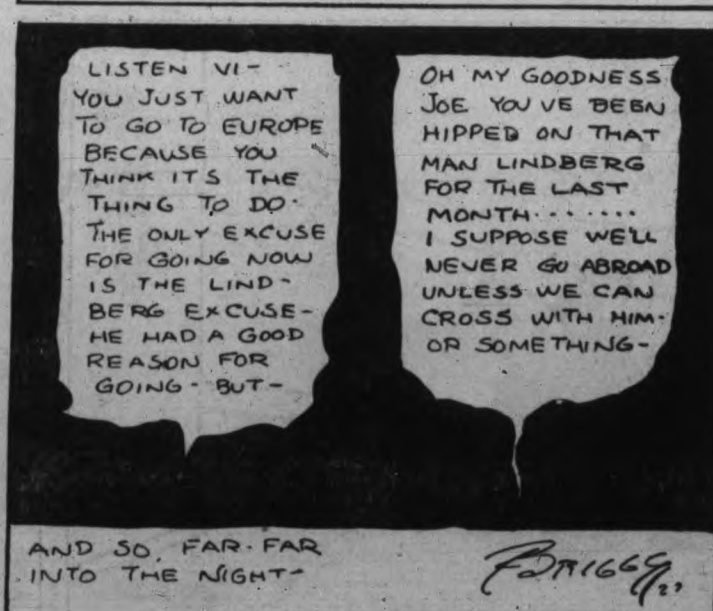 LISTEN VI-
YOU JUST WANT
TO GO TO EUROPE
BECAUSE YOU
THINK ITS THE
THING TO DO.
THE ONLY EXCUSE
FOR GOING NOW
IS THE LIND-
BERG EXCUSE-
HE HAD A GOOD
REASON FOR
GOING- BUT-
OH MY GOODNESS
JOE YOU'VE BEEN
HIPPED ON THAT
MAN LINDBERG
FOR THE LAST
MONTH........
I SUPPOSE WE'LL
NEVER GO ABROAD
UNLESS WE CAN
CROSS WITH HIM-
OR SOMETHING-
AND SO, FAR-FAR
INTO THE NIGHT-
BRIGGS
27